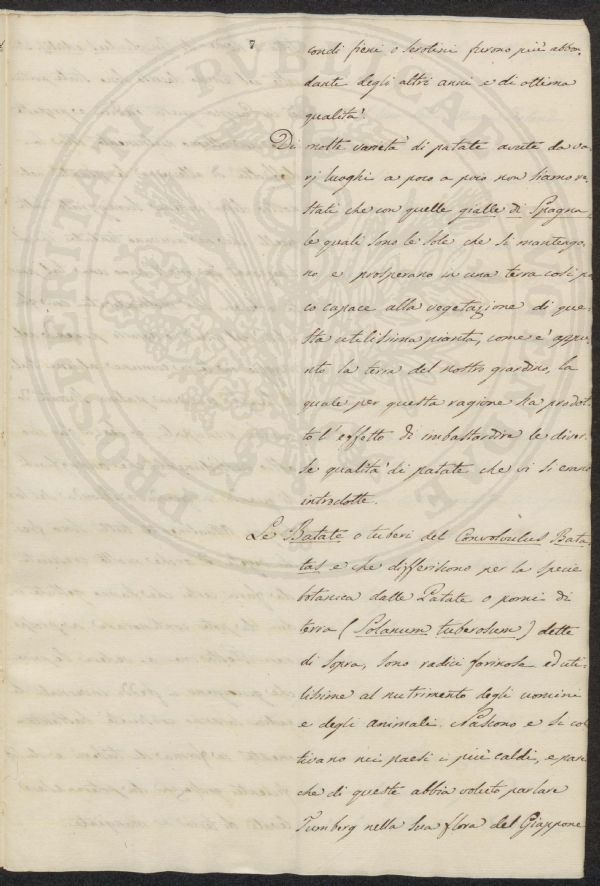 7
condi fieni o serotini furono più abbon-
dante degli altri anni e di ottima
qualità.
Di molte varietà di patate avute da va-
rj luoghi a poco a poco non siamo re-
stati che con quelle gialle di Spagna,
le quali sono le sole che si mantengo-
no, e prosperano in una terra così po-
co capace alla vegetazione di que-
sta utilissima pianta, come è appu-
nto la terra del nostro giardino, la
quale per questa ragione ha prodot-
to l'effetto di imbastardire le diver-
se qualità di patate che vi si erano
introdotte.
Le Batate o tuberi del Convolvulus Bata-
tas e che differiscono per la specie
botanica dalle Patate o pomi di
terra (Solanum tuberosum) dette
di sopra, sono radici farinose ed uti-
lissime al nutrimento degli uomini
e degli animali. Nascono e si col-
tivano nei paesi i più caldi, e pare
che di queste abbia voluto parlare
Tumberg nella sua flora del Giappone
PROSPERITATI PUBLICAE AUGENDAE